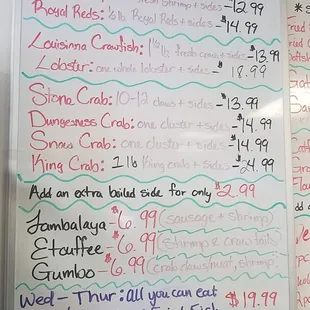 fresh shrimp + sides - 12.99
Royal Reds: ½ lb Royal Reds + sides
- 14.99
Louisiana Crawfish: 1½ lb fresh craw + sides - 13.99
Lobster: one whole lobster + sides - 18.99
Stone Crab: 10-12 claws + sides - 13.99
Dungeness Crab: one cluster + sides - 14.99
Snow Crab: one cluster + sides - 14.99
King Crab: 1 lb King crab + sides - 24.99
Add an extra boiled side for only $2.99
Jambalaya - 6.99 (sausage + shrimp)
Etouffee - 6.99 (shrimp & craw tails)
Gumbo - 6.99 (crab claws/meat, shrimp
Wed - Thur: All you can eat $19.99